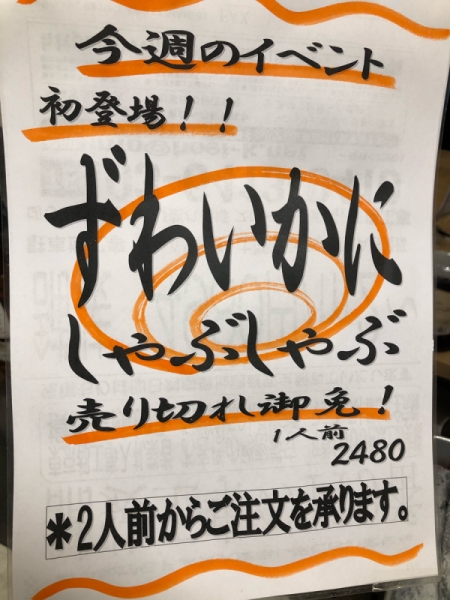 今週のイベント
初登場！！
ずわいかに
しゃぶしゃぶ
売り切れ御免！
1人前
2480
＊2人前からご注文を承ります。